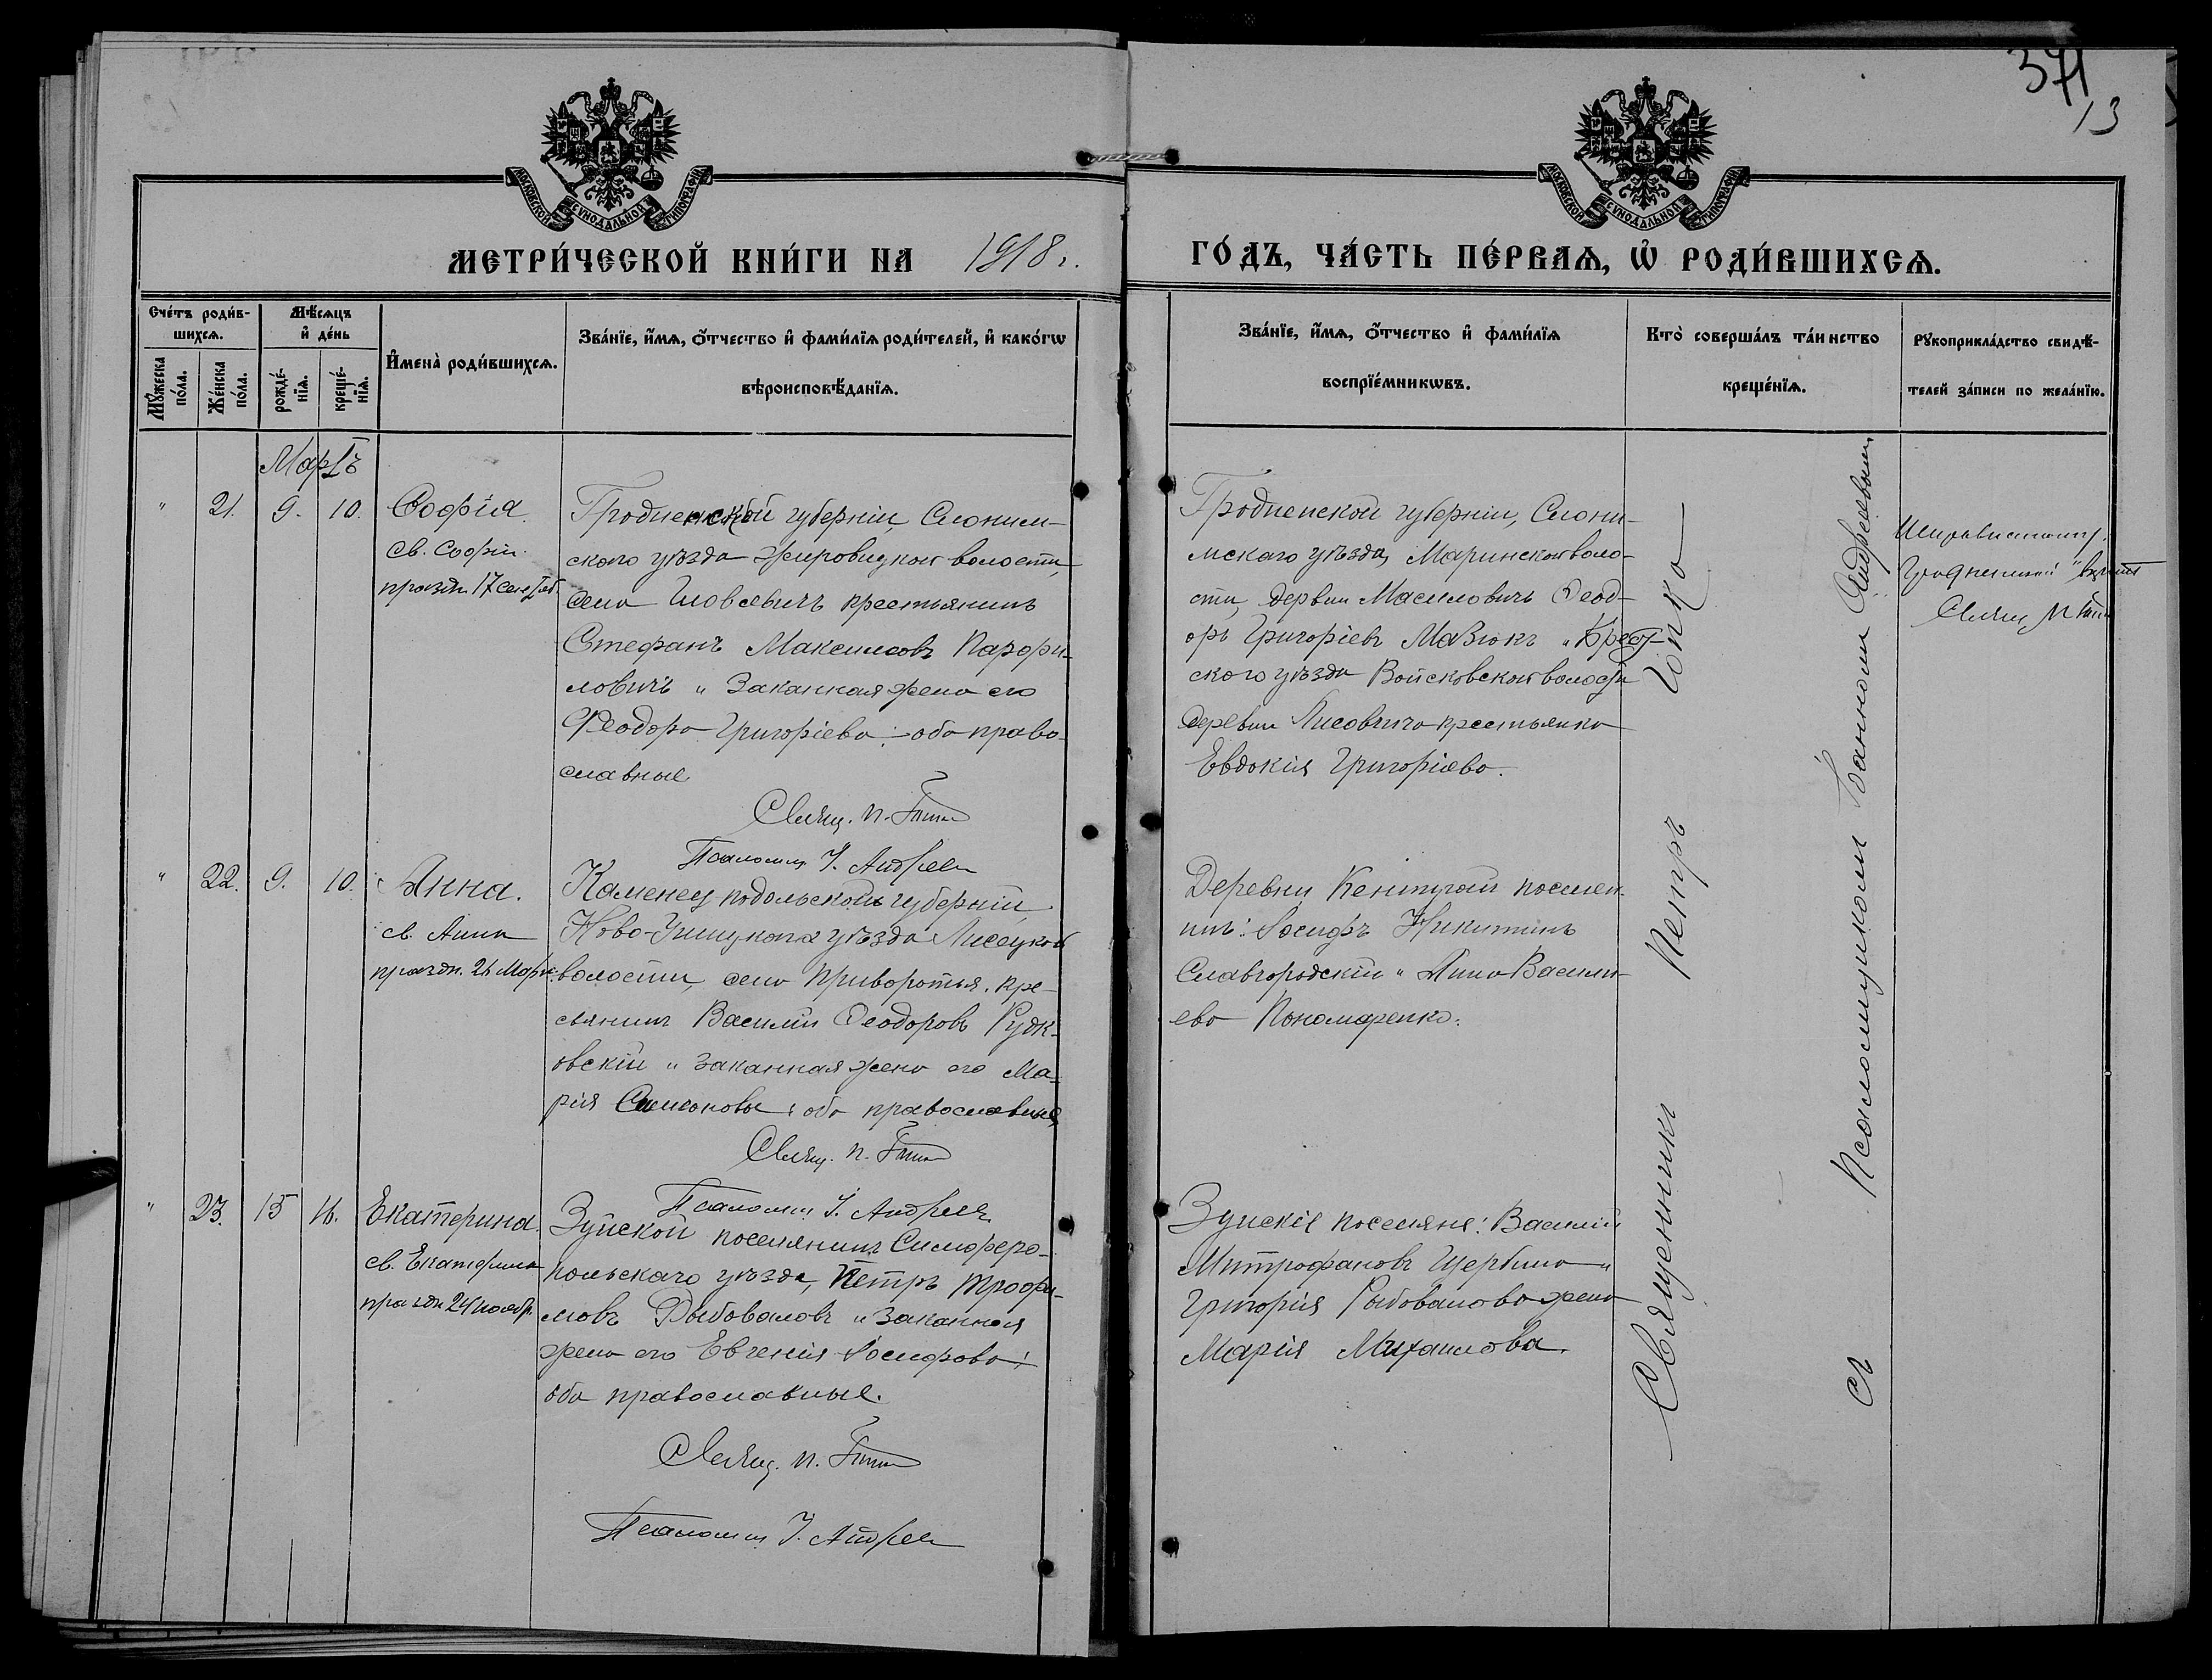 371
13
МОСКОВСКОЙ СѴНОДАЛЬНОЙ ТИПОГРАФІИ
МОСКОВСКОЙ СѴНОДАЛЬНОЙ ТИПОГРАФІИ
МЕТРИ́ЧЕСКОЙ КНИ́ГИ НА 1918 г.
ГО́ДЪ, ЧА́СТЬ ПЕ́РВАѦ, Ѽ РОДИ́ВШИХСѦ.
Сче́тъ роди́в-
шихсѧ.
Мꙋ́жеска
по́ла.
Же́нска
по́ла.
Мѣ́сѧцъ
и҆ де́нь
рожде́-
нїѧ.
креще́-
нїѧ.
И҆мена̀ роди́вшихсѧ.
Зва́нїе, и҆́мѧ, ѻ҆́тчество и҆ фами́лїѧ роди́телей, и҆ како́гѡ
вѣроисповѣ́данїѧ.
Зва́нїе, и҆́мѧ, ѻ҆́тчество и҆ фами́лїѧ
воспрїе́мникѡвъ.
Кто̀ соверша́лъ та́инство
креще́нїѧ.
Рꙋкоприкла́дство свидѣ́-
телей за́писи по жела́нїю.
Мартъ
" 21. 9. 10.
Софія.
св. Софіи.
праздн. 17 сентяб.
Гродненской губерніи Слоним-
скаго уѣзда Жировицкой волости,
села крестьянинъ
Стефанъ Максимовъ Парфи-
ловичъ и законная жена его
Феодора Григоріева: оба право-
славные
Свящ. П.
Псаломщ. І. Андреев
Гродненской губерніи, Слони-
мскаго уѣзда, Маринской воло-
сти, Феод-
оръ Григоріевъ Мазюкъ и Брест-
скаго уѣзда Войсковской волости
деревни крестьянка
Евдокія Григоріева.
" 22. 9. 10.
Анна.
св. Анна
праздн. 26 Март.
Каменец подольской губерніи
Ново-Ушицкаго уѣзда
волости, села Привороття, кре-
стьянинъ Василій Феодоровъ Рудк-
овскій и законная жена его Ма-
рія Симонова: оба православные
Свящ. П.
Псаломщ. І. Андреев
Деревни Кентугай поселян-
инъ: Іосифъ Никитинъ
Славгородскій и Анна Василь-
ева Пономаренко.
" 23. 15 16.
Екатерина.
св. Екатерина
праздн 24 ноябр.
Зуйской поселянинъ Симферо-
польскаго уѣзда, Петръ Трофи-
мовъ Рыбоваловъ и законная
жена его Евгенія Іосифова:
оба православные.
Свящ. П.
Псаломщ І. Андреев
Зуйскіе поселяне: Василій
Митрофановъ Щербина и
Григорія Рыбовалова жена
Марія Михаилова.
Священникъ Петръ
съ Псаломщикомъ Іоанномъ Андреевымъ
Свящ